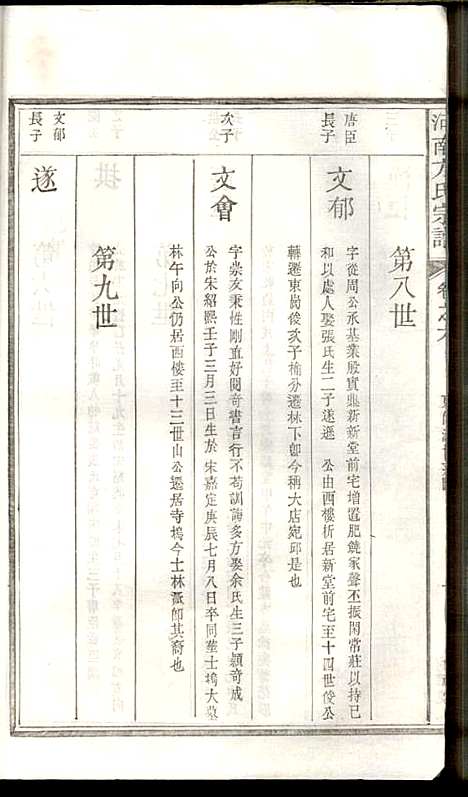 河南方氏宗譜
卷之六
第八世
唐臣
長子
文郁
字從周公承基業殷實鼎新新堂前宅增置肥饒家聲丕振閑常莊以持己
和以處人娶張氏生二子遂遜 公由西樓析居新堂前宅至十四世俊公
轉遷東崗後次子榆分遷林下郎今稱大店宛邱是也
次子
文會
字崇友秉性剛直好閱奇書言行不苟訓誨多方娶余氏生三子穎奇成
公於宋紹熙壬子三月三日生於宋嘉定庚辰七月八日卒同葬士塢大墓
林午向公仍居西樓至十三世山公遷居寺塢今士林派郎其裔也
第九世
文郁
長子
遂